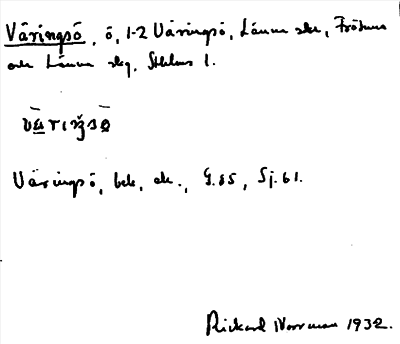 Väringsö, ö, 1-2 Väringsö, Länna skn, Frötuna
och Länna skg, Sthlms l.
Väringsö, bek, ek., G.85, Sj.61.
Rickard Norrman 1932.